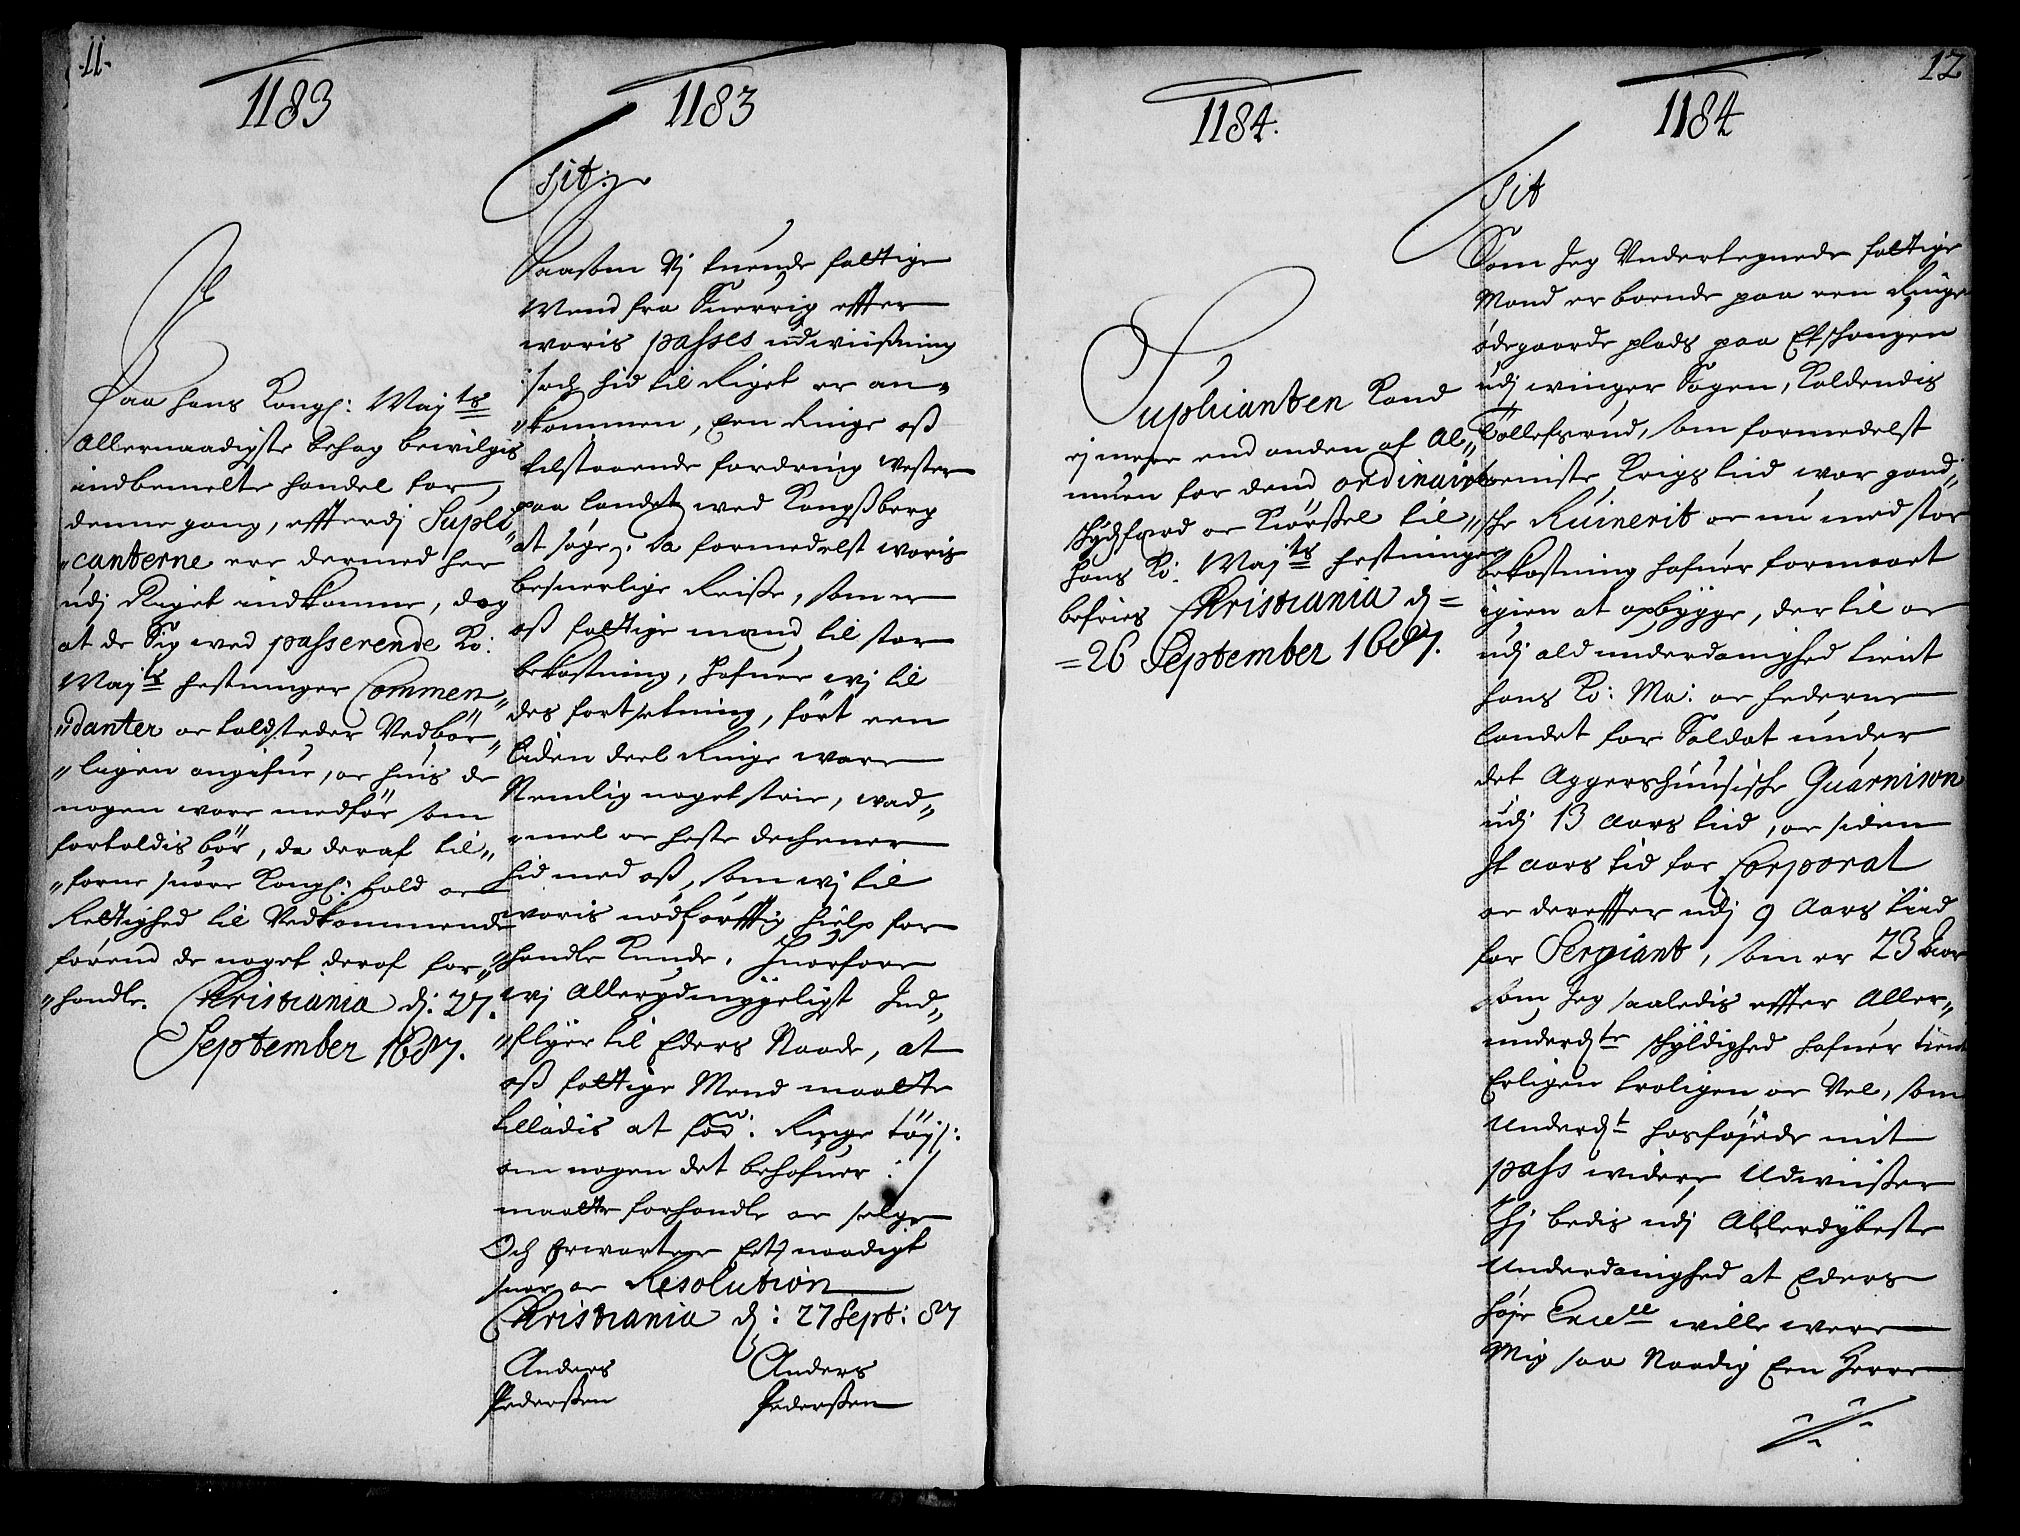 .11.
1183
Paa hans Kongl: May.ts
Allernaadigste behag bewilgis
indbemelte handel for
denne gang, effterdj Supli„
„canterne ere dermed her
udj Riget indkomne, dog
at de Sig ved passerende Ko:
May.ts festninger Commen„
„danter oc toldsteder Vedbör„
„ligen angifue, oc huis de
nogen ware medför som
fortoldis bör, da deraf til„
„forne suare Kongl: told oc
Rettighed til Vedkommende
förend de noget deraf for„
„handle. Christiania dj: 27.
September 1687.
1183
Sit:
Saasom Vj tuende fattige
Mend fra Suerrig effter
woris passes udwiißning
hid til Riget er an„
„kommen, een Ringe oß
tilstaaende fordring Vester
paa landet ved Kongßberg
at søge, da formedelst woris
besuerlige Reiße, som er
oß fattige mænd til stor
bekostning, hafuer wj til
des fortsetning, fört een
liden deel Ringe ware
Nemlig noget , wad„
„mel oc heste dechener
hid med oß, som wj til
woris nödtörfftig hielp for
handle kunde, Huorfore
wj Allerydmygeligst Ind„
„flyer til Eders Naade, at
oß fattige Mend maatte
tilladis at for: Ringe töj /:
om nogen det behøfuer :/
maatte forhandle oc selge
Och forwarter Et naadigt
suar oc Resolution
Christiania dj: 27 Sept: 87
Anders Anders
Pederßen Pederßen
12
1184.
Suplicanten Kand
ej mere end anden af Al„
muen for dend ordinaire
skydsferd oc Kiörßel til
hans Ko: May.ts festninger
befries Christiania dj =
= 26 September 1687.
1184
Sit
Som Jeg Undertegnede fattige
Mand er boende paa een Ringe
ødegaards plads paa Eskougen
udj winger Sogen, Kaldendis
Tollefsrud, som formedelst
seniste Krigs tiid war gand„
ske Ruinerit oc nu med stor
bekostning hafuer formaaet
igien at opbygge, der til oc
udj ald underdanighed tient
hans Ko: Ma: oc federne
landet for Soldat under
det Aggershuusiske Guarnison
udj 13 Aars tiid, oc siden
It aars tid for Corporal
oc dereffter udj 9 Aars tiid
for Sergiant, som er 23 Aar
som Jeg saaledis effter Aller„
underd.te skyldighed hafuer tient
Erligen troligen oc Vel, som
Underd.t hosføjede mit
pass widere Udwiißer
Thj bedis udj Allerdybeste
Underdanighed at Eders
høje Excell.e wille were
Mig saa Naadig Een Herre